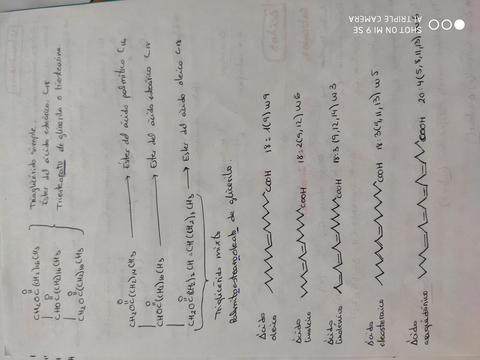 CH₂OC(CH₂)₁₆CH₃
CHOC(CH₂)₁₆CH₃
CH₂OC(CH₂)₁₆CH₃
Triglicérido simple.
Ester del ácido esteárico C₁₈
Triestearato de glicerilo o triestearina
CH₂OC(CH₂)₁₄CH₃ → Ester del ácido palmítico C₁₆
CHOC(CH₂)₁₆CH₃ → Ester del ácido esteárico C₁₈
CH₂OC(CH₂)₇CH=CH(CH₂)₇CH₃ → Ester del ácido oleico C₁₈
Triglicérido mixto
Palmitoestearooleato de glicerilo.
Ácido oleico COOH 18:1(9) ω9
Ácido linoleico COOH 18:2(9,12) ω6
Ácido linolénico COOH 18:3(9,12,14) ω3
Ácido eleosteárico COOH 18:3(9,11,13) ω5
Ácido araquidónico COOH 20:4(5,8,11,
SHOT ON MI 9 SE
AI TRIPLE CAMERA